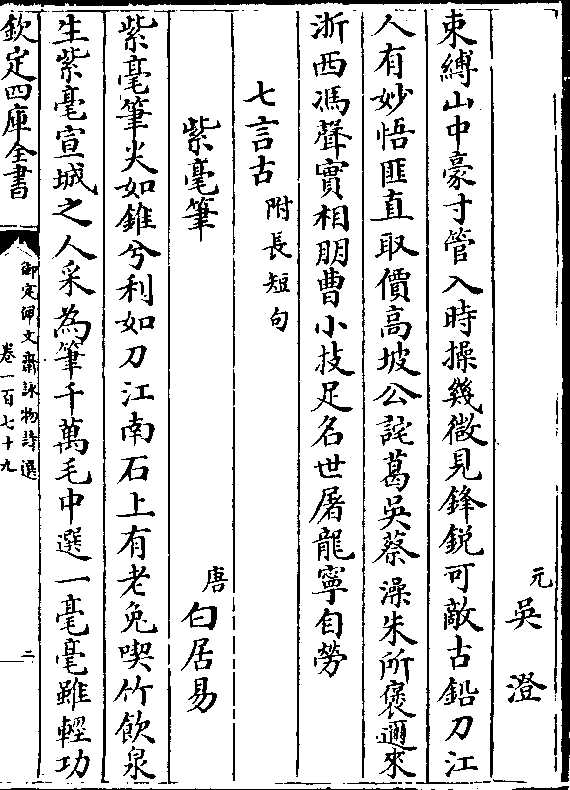 元吳澄
束縛山中豪寸管入時操幾微見鋒銳可敵古鉛刀江
人有妙悟匪直取價高坡公詫葛吳蔡澡朱所褒邇來
浙西馮聲實相朋曹小技足名世屠龍寧自勞
七言古附長短句
紫毫筆
唐白居易
紫毫筆尖如錐兮利如刀江南石上有老兔喫竹飲泉
生紫毫宣城之人采為筆千萬毛中選一毫毫雖輕功
欽定四庫全書
御定佩文齋詠物詩選
卷一百七十九
二